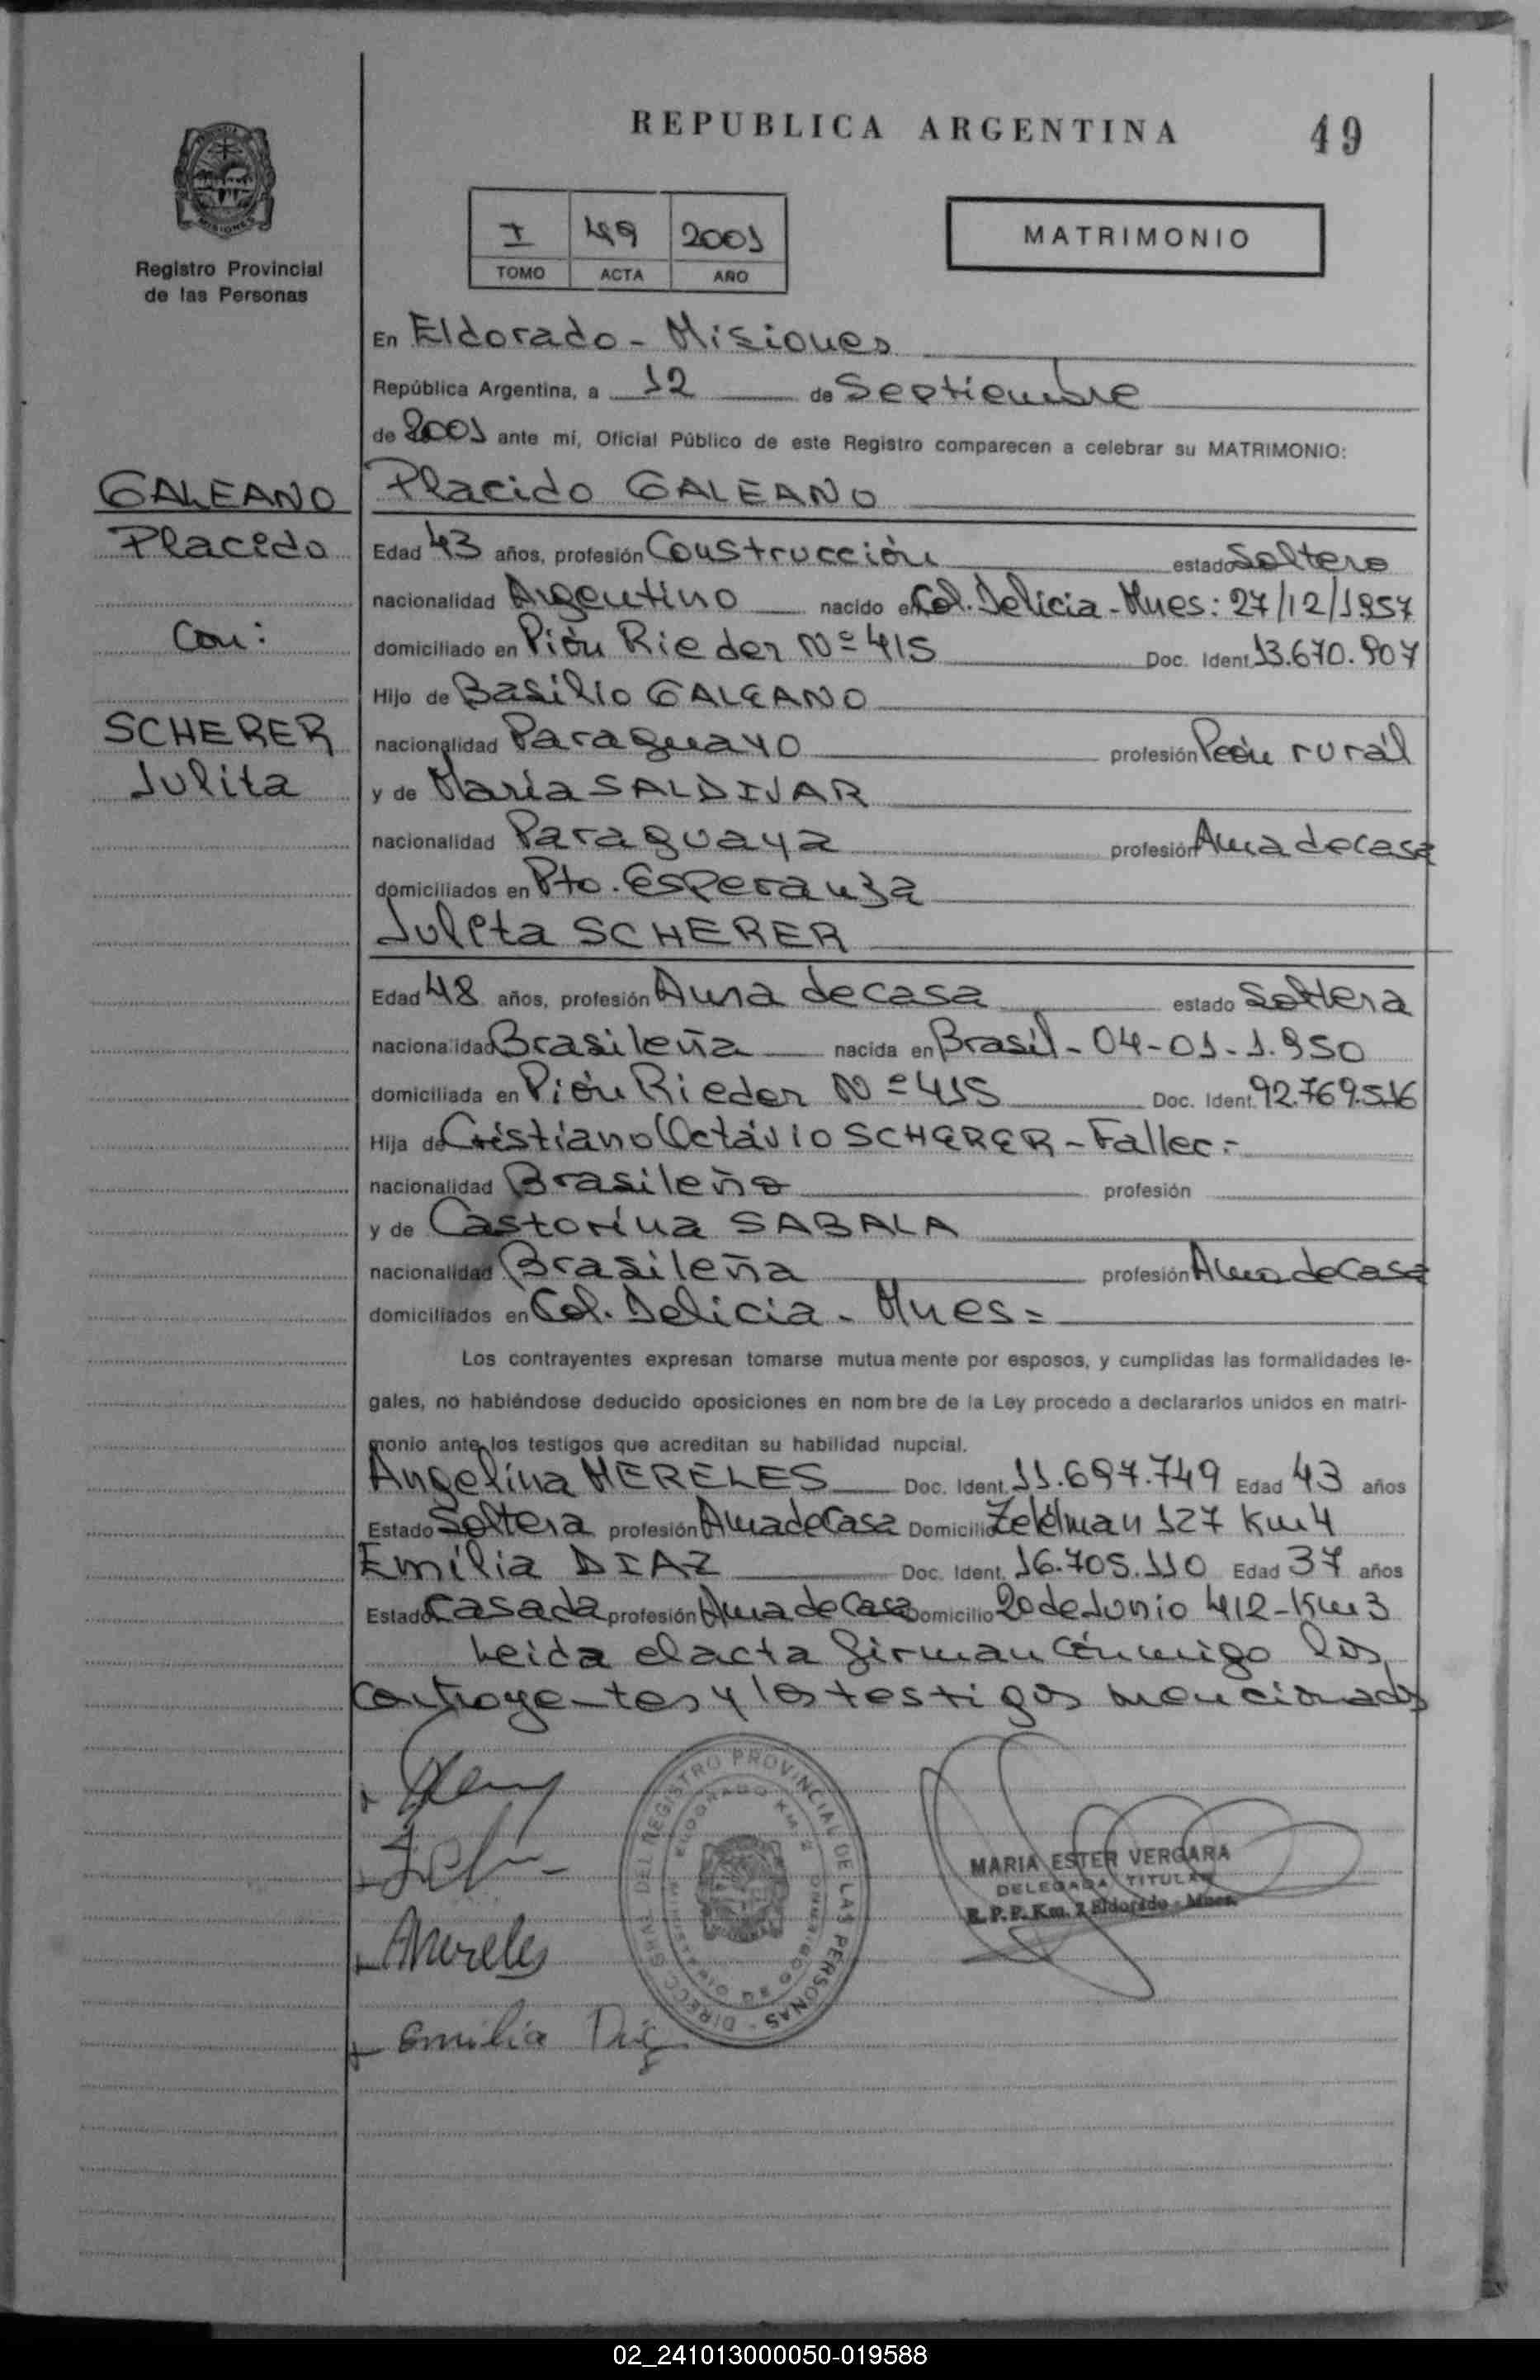 REPUBLICA ARGENTINA
49
Registro Provincial
de las Personas
MISIONES
I 49 2001
TOMO ACTA AÑO
MATRIMONIO
En Eldorado - Misiones
República Argentina, a 12 de Septiembre
de 2001 ante mí, Oficial Público de este Registro comparecen a celebrar su MATRIMONIO:
GALEANO
Placido
Con:
SCHERER
Julita
Placido GALEANO
Edad 43 años, profesión Construcción estado Soltero
nacionalidad Argentino nacido en Col. Delicia - Mnes: 27/12/1957
domiciliado en Pión Rieder Nº 415 Doc. Ident. 13.670.907
Hijo de Basilio GALEANO
nacionalidad Paraguayo profesión Peón rural
y de María SALDIVAR
nacionalidad Paraguaya profesión Ama de casa
domiciliados en Pto. Esperanza
Julita SCHERER
Edad 48 años, profesión Ama de casa estado Soltera
nacionalidad Brasileña nacida en Brasil - 04-01-1.950
domiciliada en Pión Rieder Nº 415 Doc. Ident. 92.769.516
Hija de Cristiano Octávio SCHERER - Fallec:-
nacionalidad Brasileño profesión
y de Castorina SABALA
nacionalidad Brasileña profesión Ama de Casa
domiciliados en Col. Delicia - Mnes=
Los contrayentes expresan tomarse mutua mente por esposos, y cumplidas las formalidades le-
gales, no habiéndose deducido oposiciones en nom bre de la Ley procedo a declararlos unidos en matri-
monio ante los testigos que acreditan su habilidad nupcial.
Angelina MERELES Doc. Ident. 11.697.749 Edad 43 años
Estado Soltera profesión Ama de Casa Domicilio Zeldman 127 Km 4
Emilia DIAZ Doc. Ident. 16.705.110 Edad 37 años
Estado Casada profesión Ama de Casa Domicilio 20 de Junio 412 - Km 3
Leida el acta firman conmigo los
contrayentes y los testigos mencionados
DIRECC. GRAL. DEL REGISTRO PROVINCIAL DE LAS PERSONAS
AMereles
Emilia
MARIA ESTER VERGARA
DELEGADA TITULAR
R. P. P. Km. 2 Eldorado - Mnes.
02_241013000050-019588